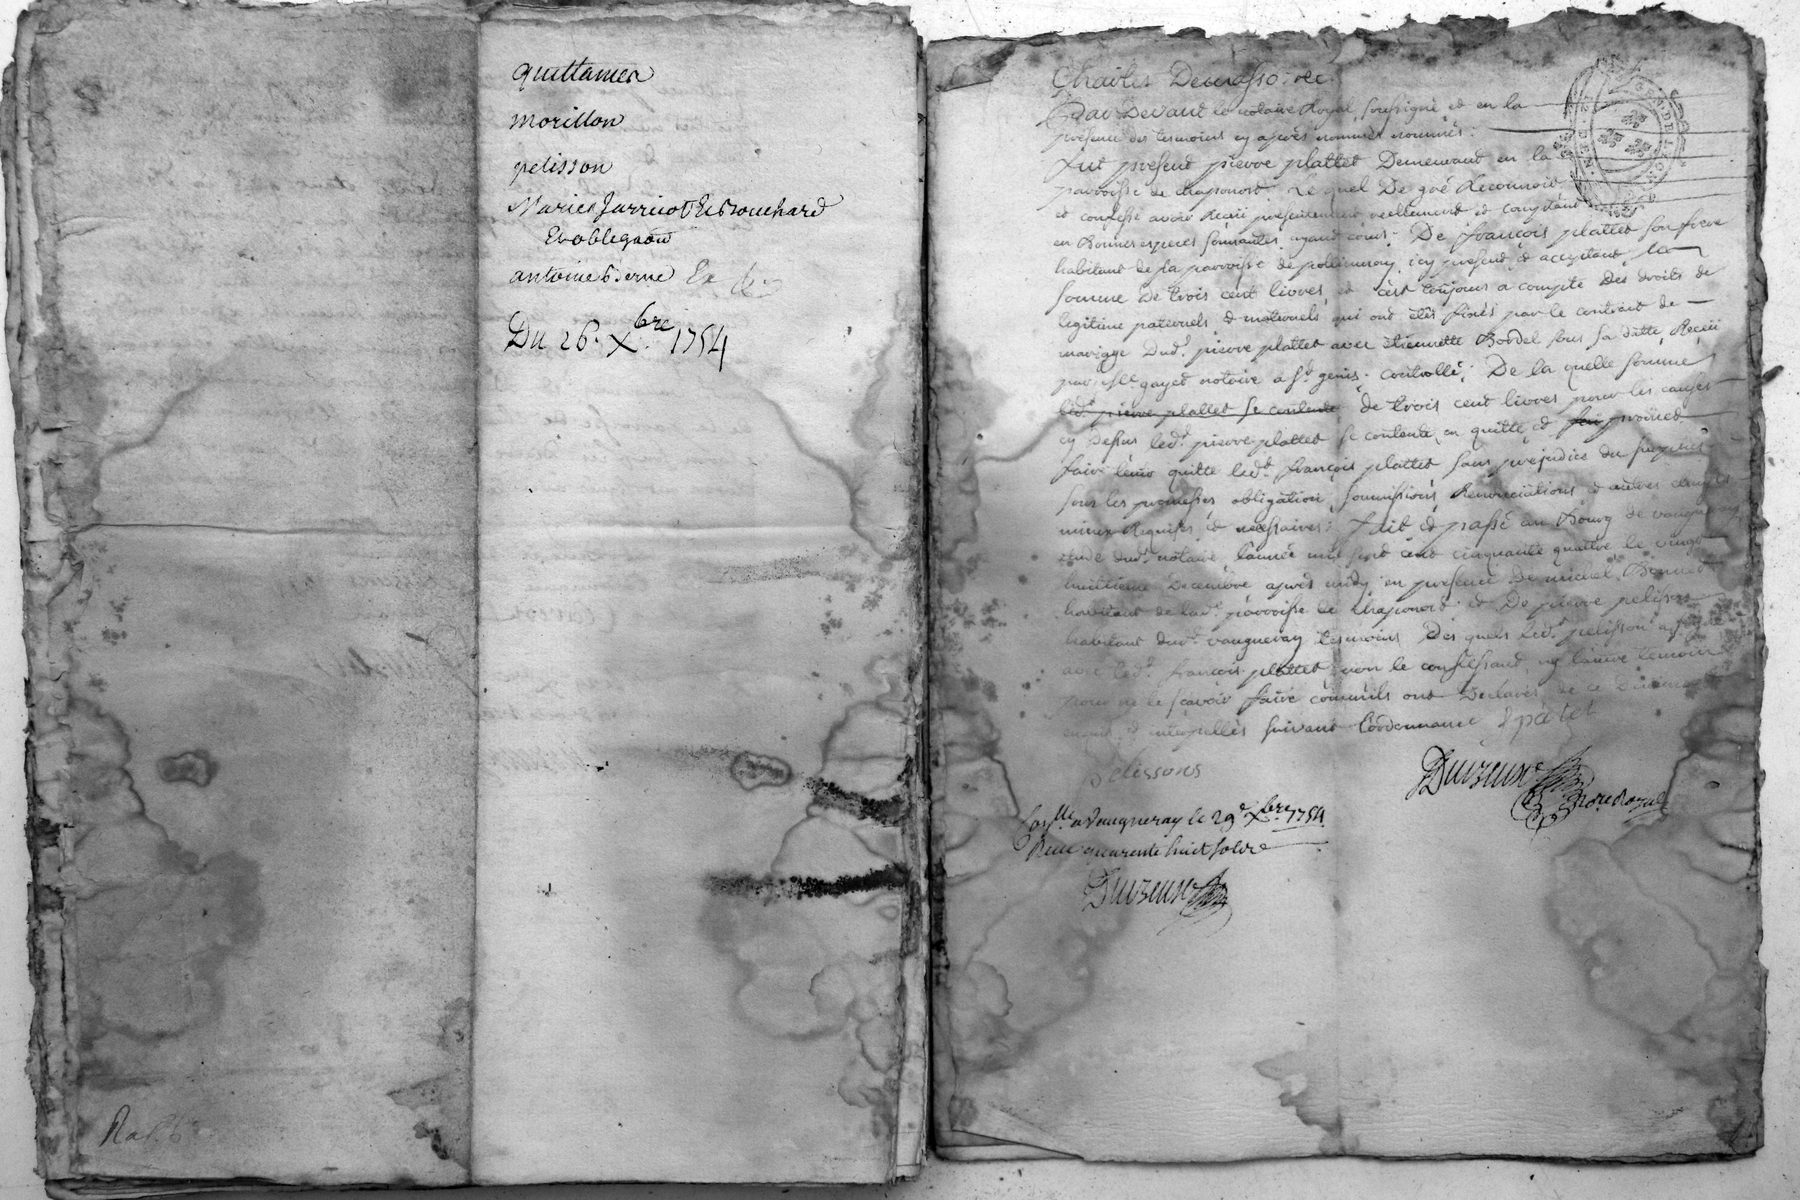 quittances
morillon
pelisson
Marie Jarricot Et Bouchard
Et obligaõn
antoine Berne Et
Du 26. Xbre 1754
Charles
Par Devant le notaire Royal soussigné et en la
presence des tesmoins cy après nommés nommés:
fut present pierre plattet Demeurant en la
parroisse de chaponost Lequel De gré Reconnoit
et confesse avoir Receu presentement reellement et comptant
en Bonnes especes sonnantes ayant cours De françois plattet son frere
habitant de la parroisse de pollionnay icy present et acceptant la
somme De trois cent livres et c'est toujours a compte des droits de
legitime paternels & maternels qui ont étés fixés par le contrat de
mariage Dud. pierre plattet avec étiennette Bordel sous sa datte Receu
par gayet notaire a St. genis controllé; De la quelle somme
led. pierre plattet se contente de trois cent livres pour les causes
cy dessus led. pierre plattet se contente en quitte et promet
faire tenir quitte led. françois plattet sans prejudice du surplus
sous les promesses obligation, soumissions Renonciations et autres clauses
mieux Requises et necessaires: fait et passé au Bourg de vaugneray
etude dud. notaire, l'année mil sept cent cinquante quattre le vingt
huitieme Decembre après midy en presence De michel Bonnet
habitant de lad. parroisse de Chaponost et De pierre pelisson
habitant dud. vaugneray tesmoins Des quels led. pelisson a signé
avec led. françois plattet non le confessant ny l'autre temoin
pour ne le sçavoir faire comm'ils ont Declarés de ce Dument
enquis et interpellés suivant L'ordonnance
pelissons
Duvzeux no.re Royal
a Vaugneray le 29e Xbre 1754
Receu quarente huit sols
Duvzeux